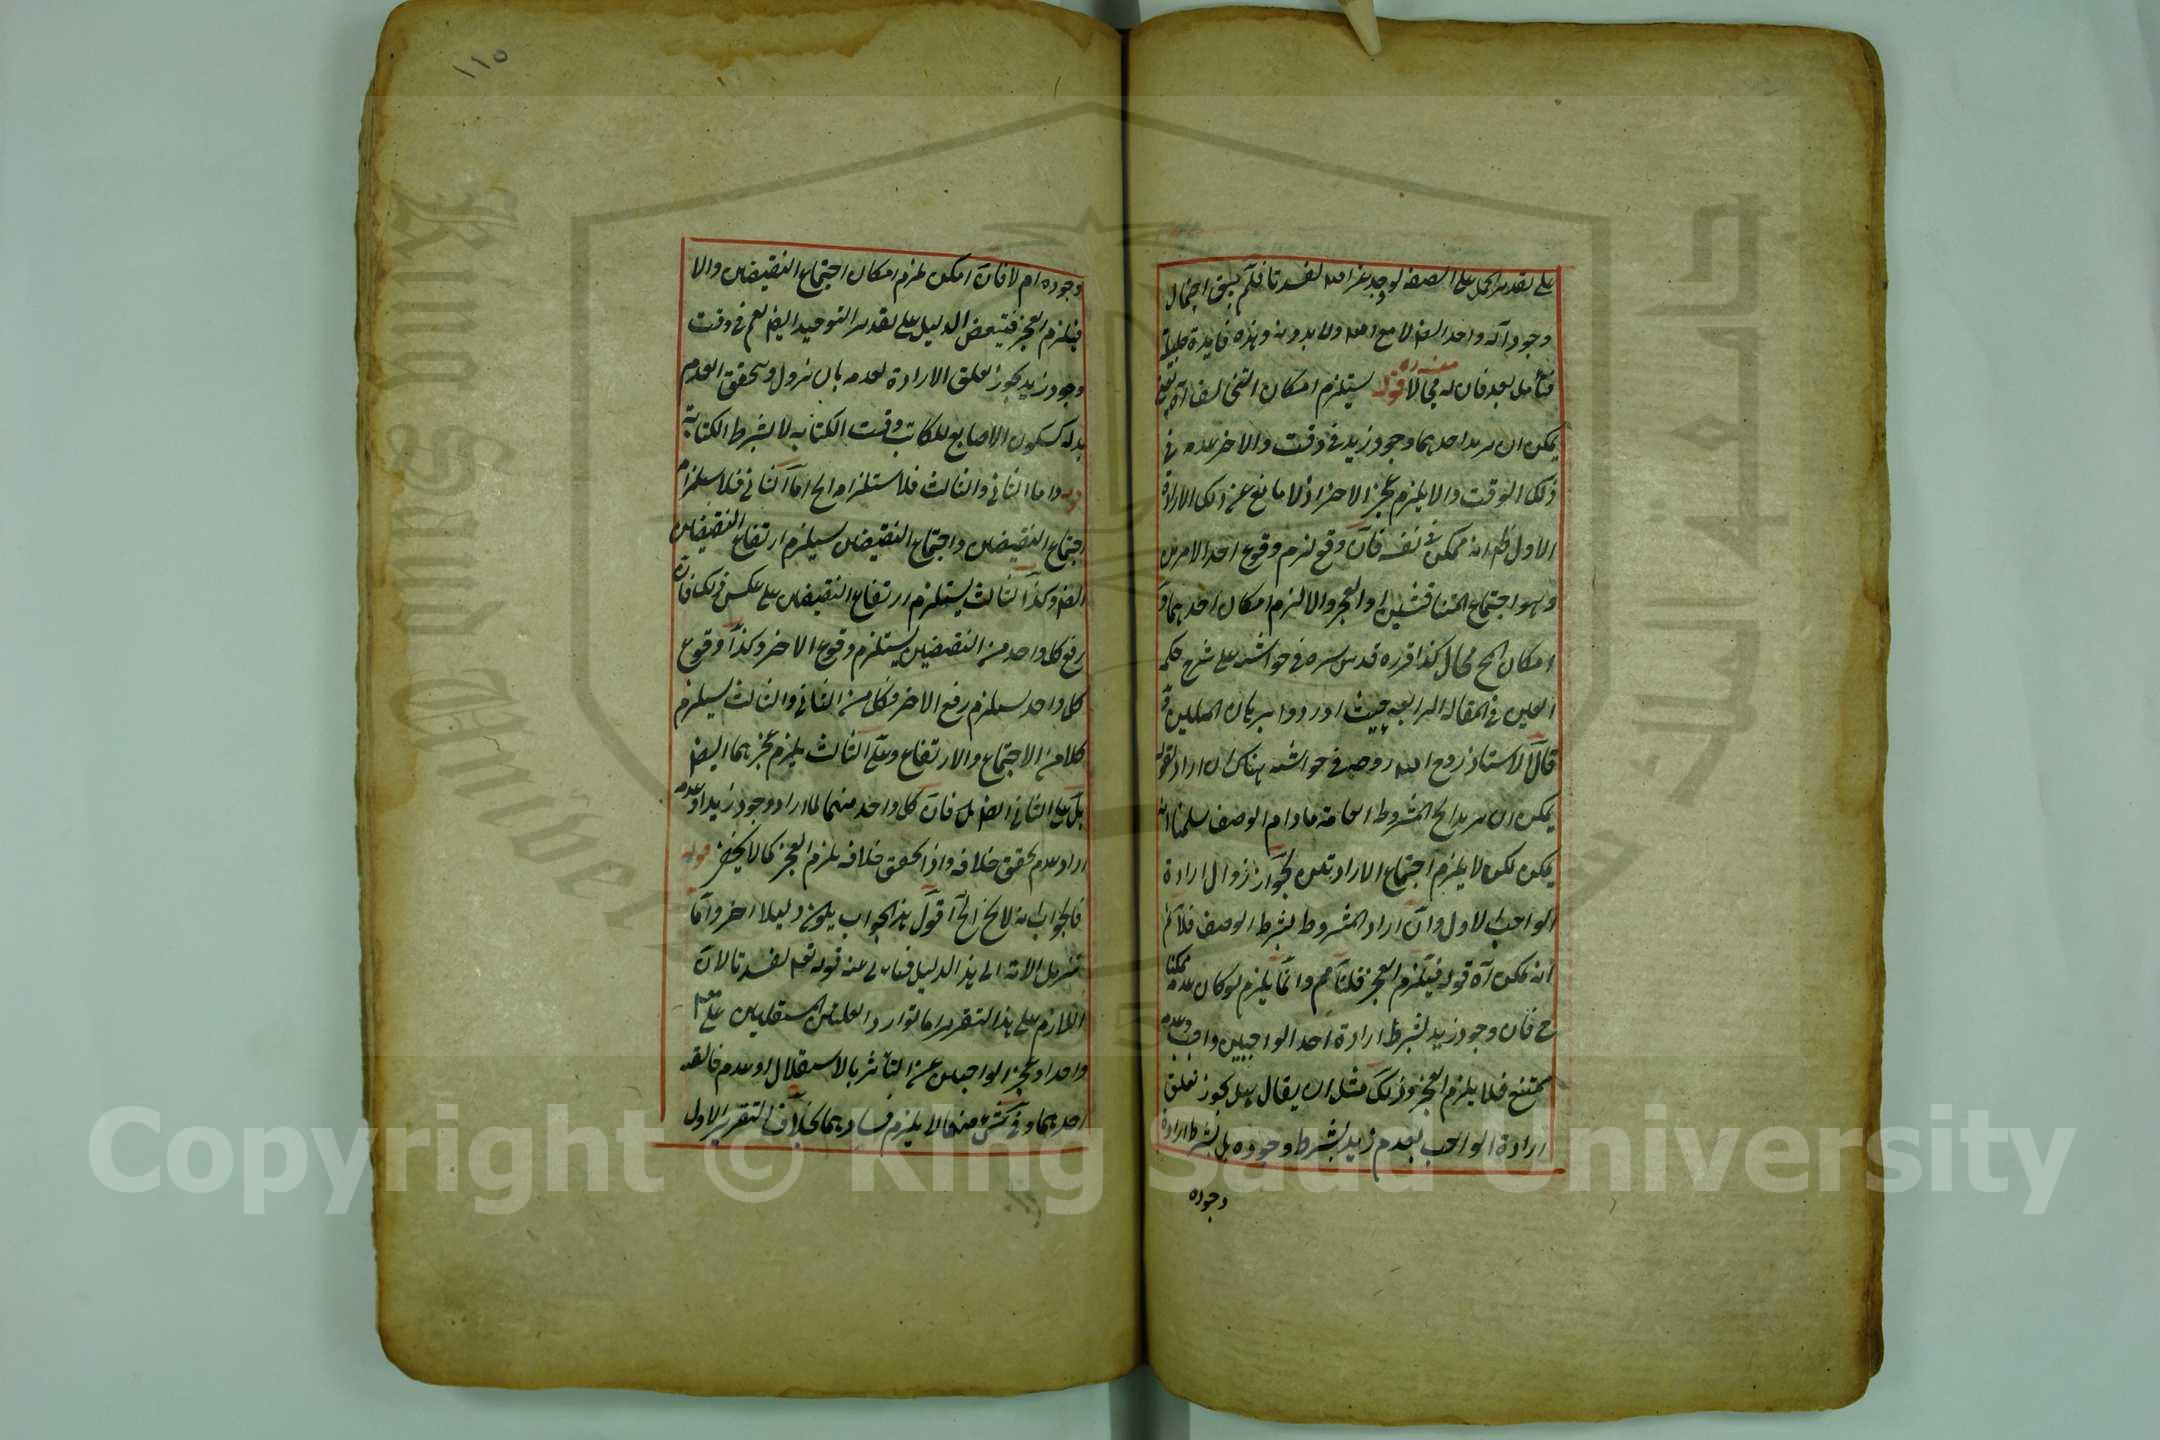 ١١٥
على تقدير الحمل على الصفة لو وجد غير الله لفسدتا فلم يبق احتمال
وجود آله واحد ايضا لا مع الله ولا بدونه وهذه فايدة جليلة
فتأمل بعد فان له مجالا قوله يستلزم امكان التمانع
يمكن ان يريد احدهما وجود زيد في وقت والاخر عدمه في
ذلك الوقت والا يلزم عجز الاخر اذ لا مانع عن ذلك الا ارادة
الاول ظم انه ممكن في نفسه فان وقع لزم وقوع احد الامرين
وهو اجتماع المتنافيين او العجز والا لزم امكان احدهما و
امكان المح محال كذا قرره قدس سره في حواشيه على شرح حكمة
العين في المقالة الرابعة حيث اوردوا برهان المليين و
قال الاستاذ روح الله روحه في حواشيه هناك ان اراد بقوله
يمكن ان يريد الخ المشروط العامة مادام الوصف سلمنا انه
يمكن لكن لا يلزم اجتماع الارادتين لجواز زوال ارادة
الواجب الاول وان اراد المشروط بشرط الوصف فلا نم
انه ممكن آه قوله فيلزم العجز قلنا مم وانما يلزم لو كان عدمه ممكنا
ح فان وجود زيد بشرط ارادة احد الواجبين واجب وعدمه
ممتنع فلا يلزم العجز وذلك مثل ان يقال هل يجوز تعلق
ارادة الواجب بعدم زيد بشرط وجوده بل بشرط ارادة
وجوده
وجوده ام لا فان امكن يلزم امكان اجتماع النقيضين والا
فيلزم العجز فينتقض الدليل على تقدير التوحيد ايضا نعم في وقت
وجود زيد يجوز تعلق الارادة بعدمه بان يزول ويتحقق العدم
بدله كسكون الاصابع للكاتب وقت الكتابة لا بشرط الكتابة
قوله واما الثاني والثالث فلاستلزامه الخ اما الثاني فلاستلزام
اجتماع النقيضين واجتماع النقيضين يستلزم ارتفاع النقيضين
ايضا وكذا الثالث يستلزم ارتفاع النقيضين على عكس ذلك فان
رفع كل واحد من النقيضين يستلزم وقوع الاخر وكذا وقوع
كل واحد يستلزم رفع الاخر فكل من الثاني والثالث يستلزم
كلا من الاجتماع والارتفاع وعلى الثالث يلزم عجزهما ايضا
بل على الثاني ايضا بل فان كل واحد منهما لما اراد وجود زيد او عدمه
اراد عدم تحقق خلافه واذا تحقق خلافه يلزم العجز كما لا يخفى قوله
فالجواب انه لا يخ الخ اقول هذا الجواب يكون دليلا اخر واما
تنزيل الاية الى هذا الدليل فيأبى عنه قوله تعم لفسدتا لان
اللازم على هذا التقرير اما توارد العلتين المستقلتين على مع
واحد او عجز الواجبين عن التأثير بالاستقلال او عدم خالقية
احدهما وفي شيء منهما لا يلزم فسادهما بخلاف التقرير الاول
Copyright © King Saud University